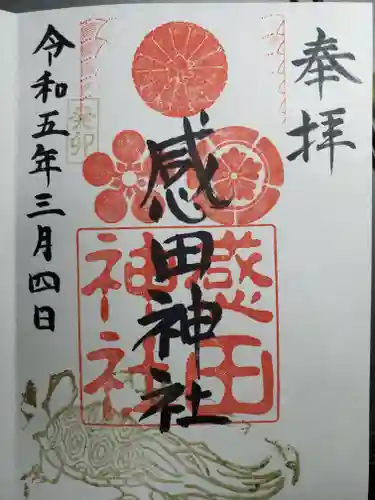 奉拝
感田神社
感田
神社
令和五年三月四日
癸卯